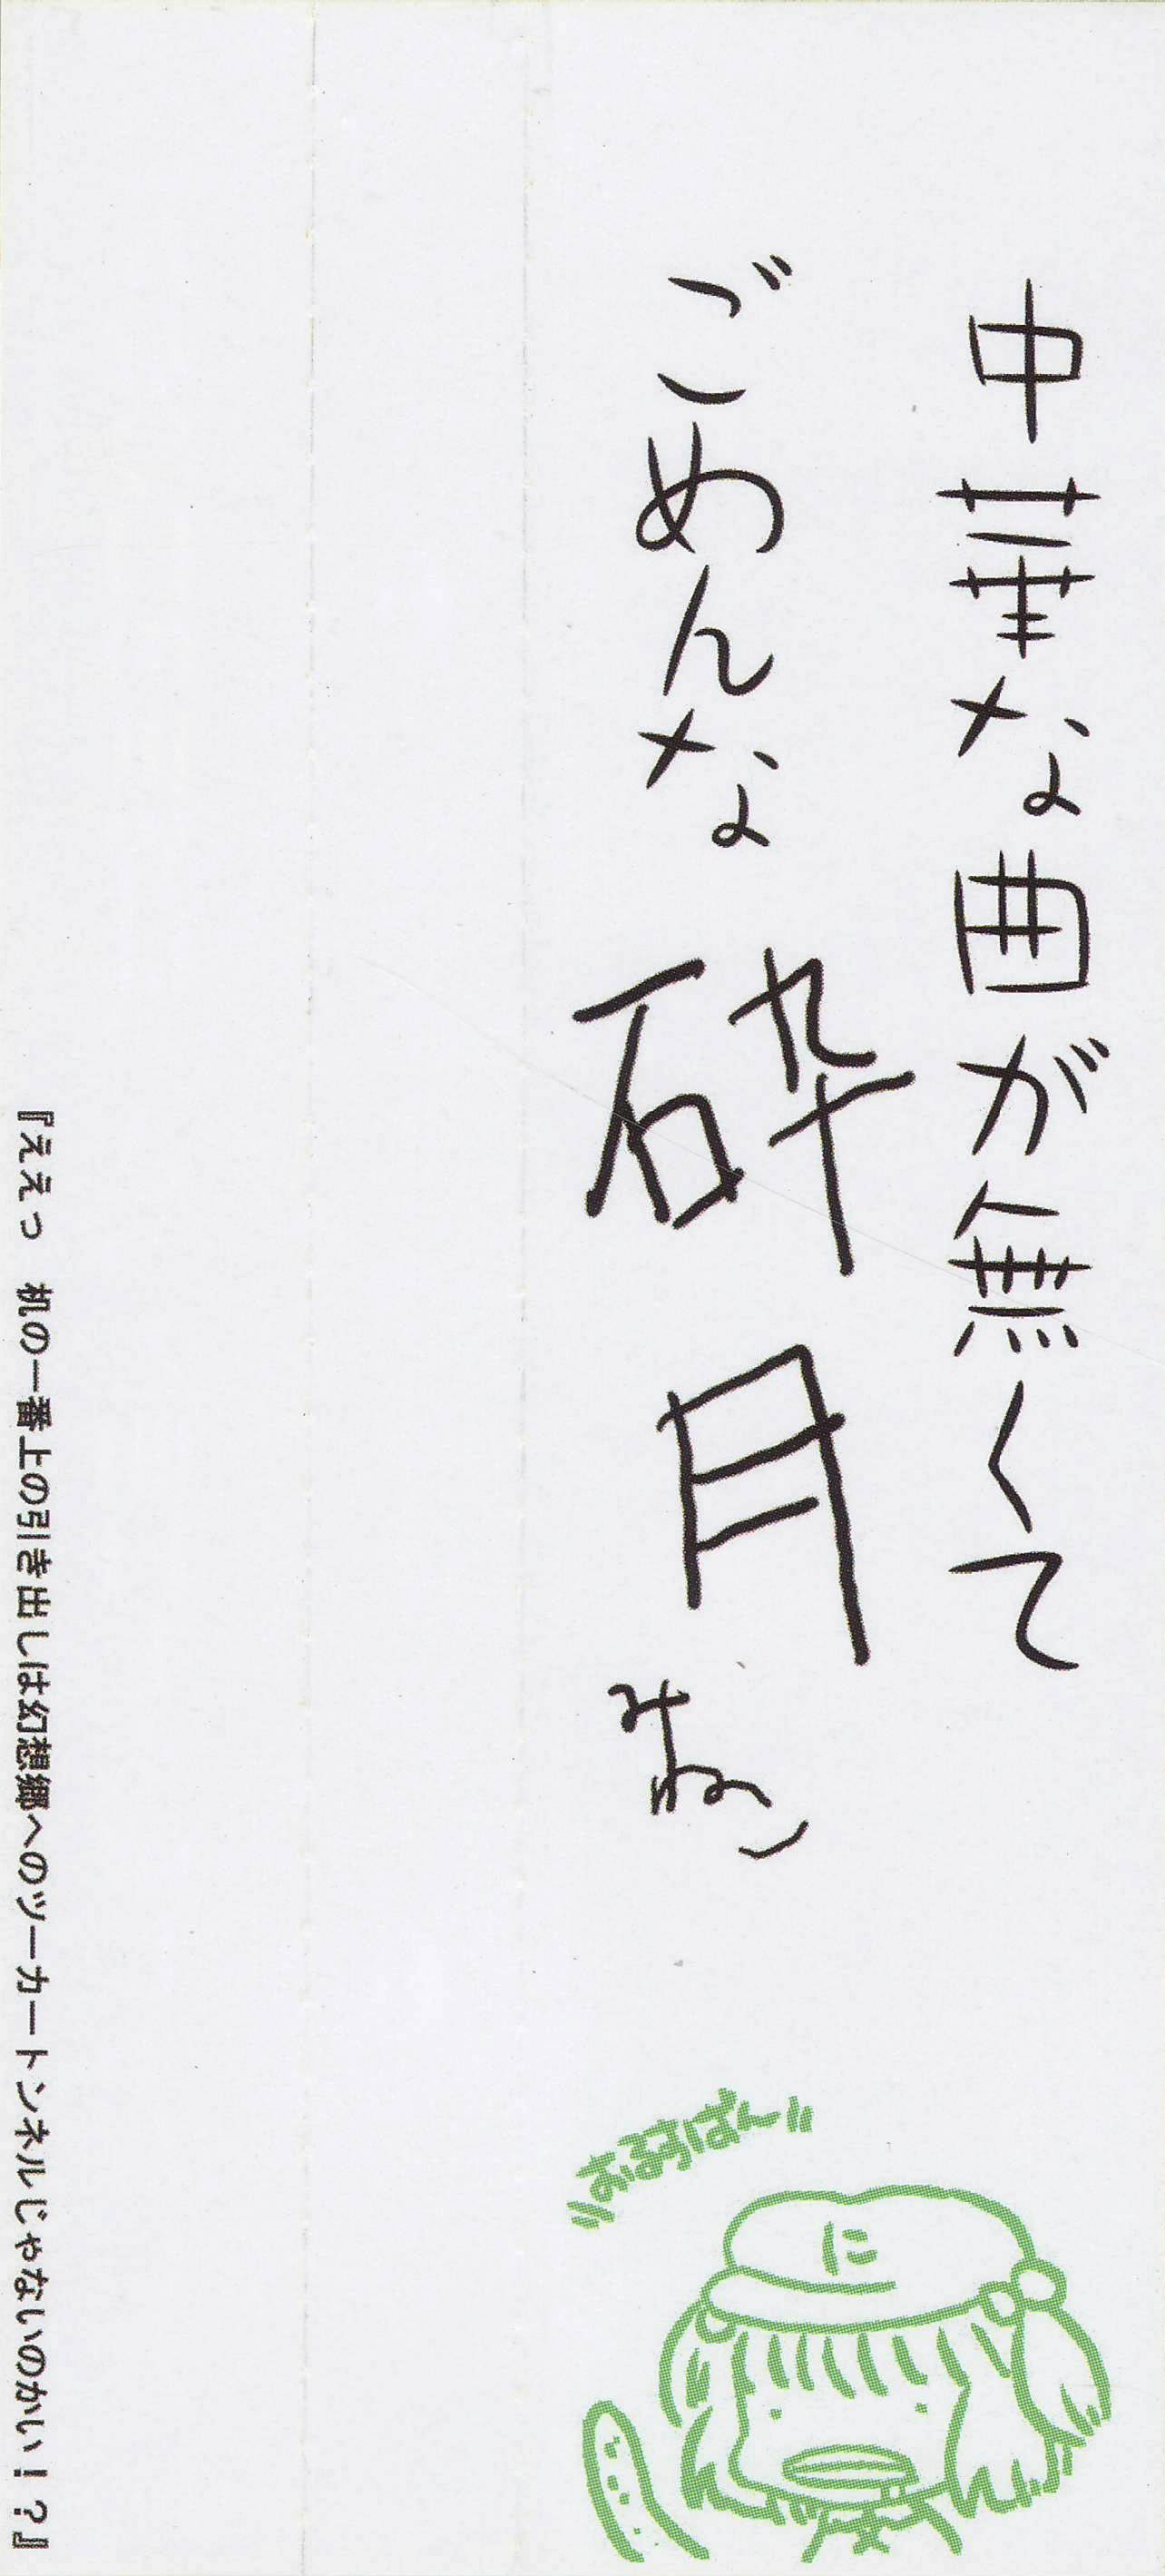 中華な曲が無くて
ごめんな
砕月
みねこ
おるすばん
に
『ええっ 机の一番上の引き出しは幻想郷へのツーカートンネルじゃないのかい！？』